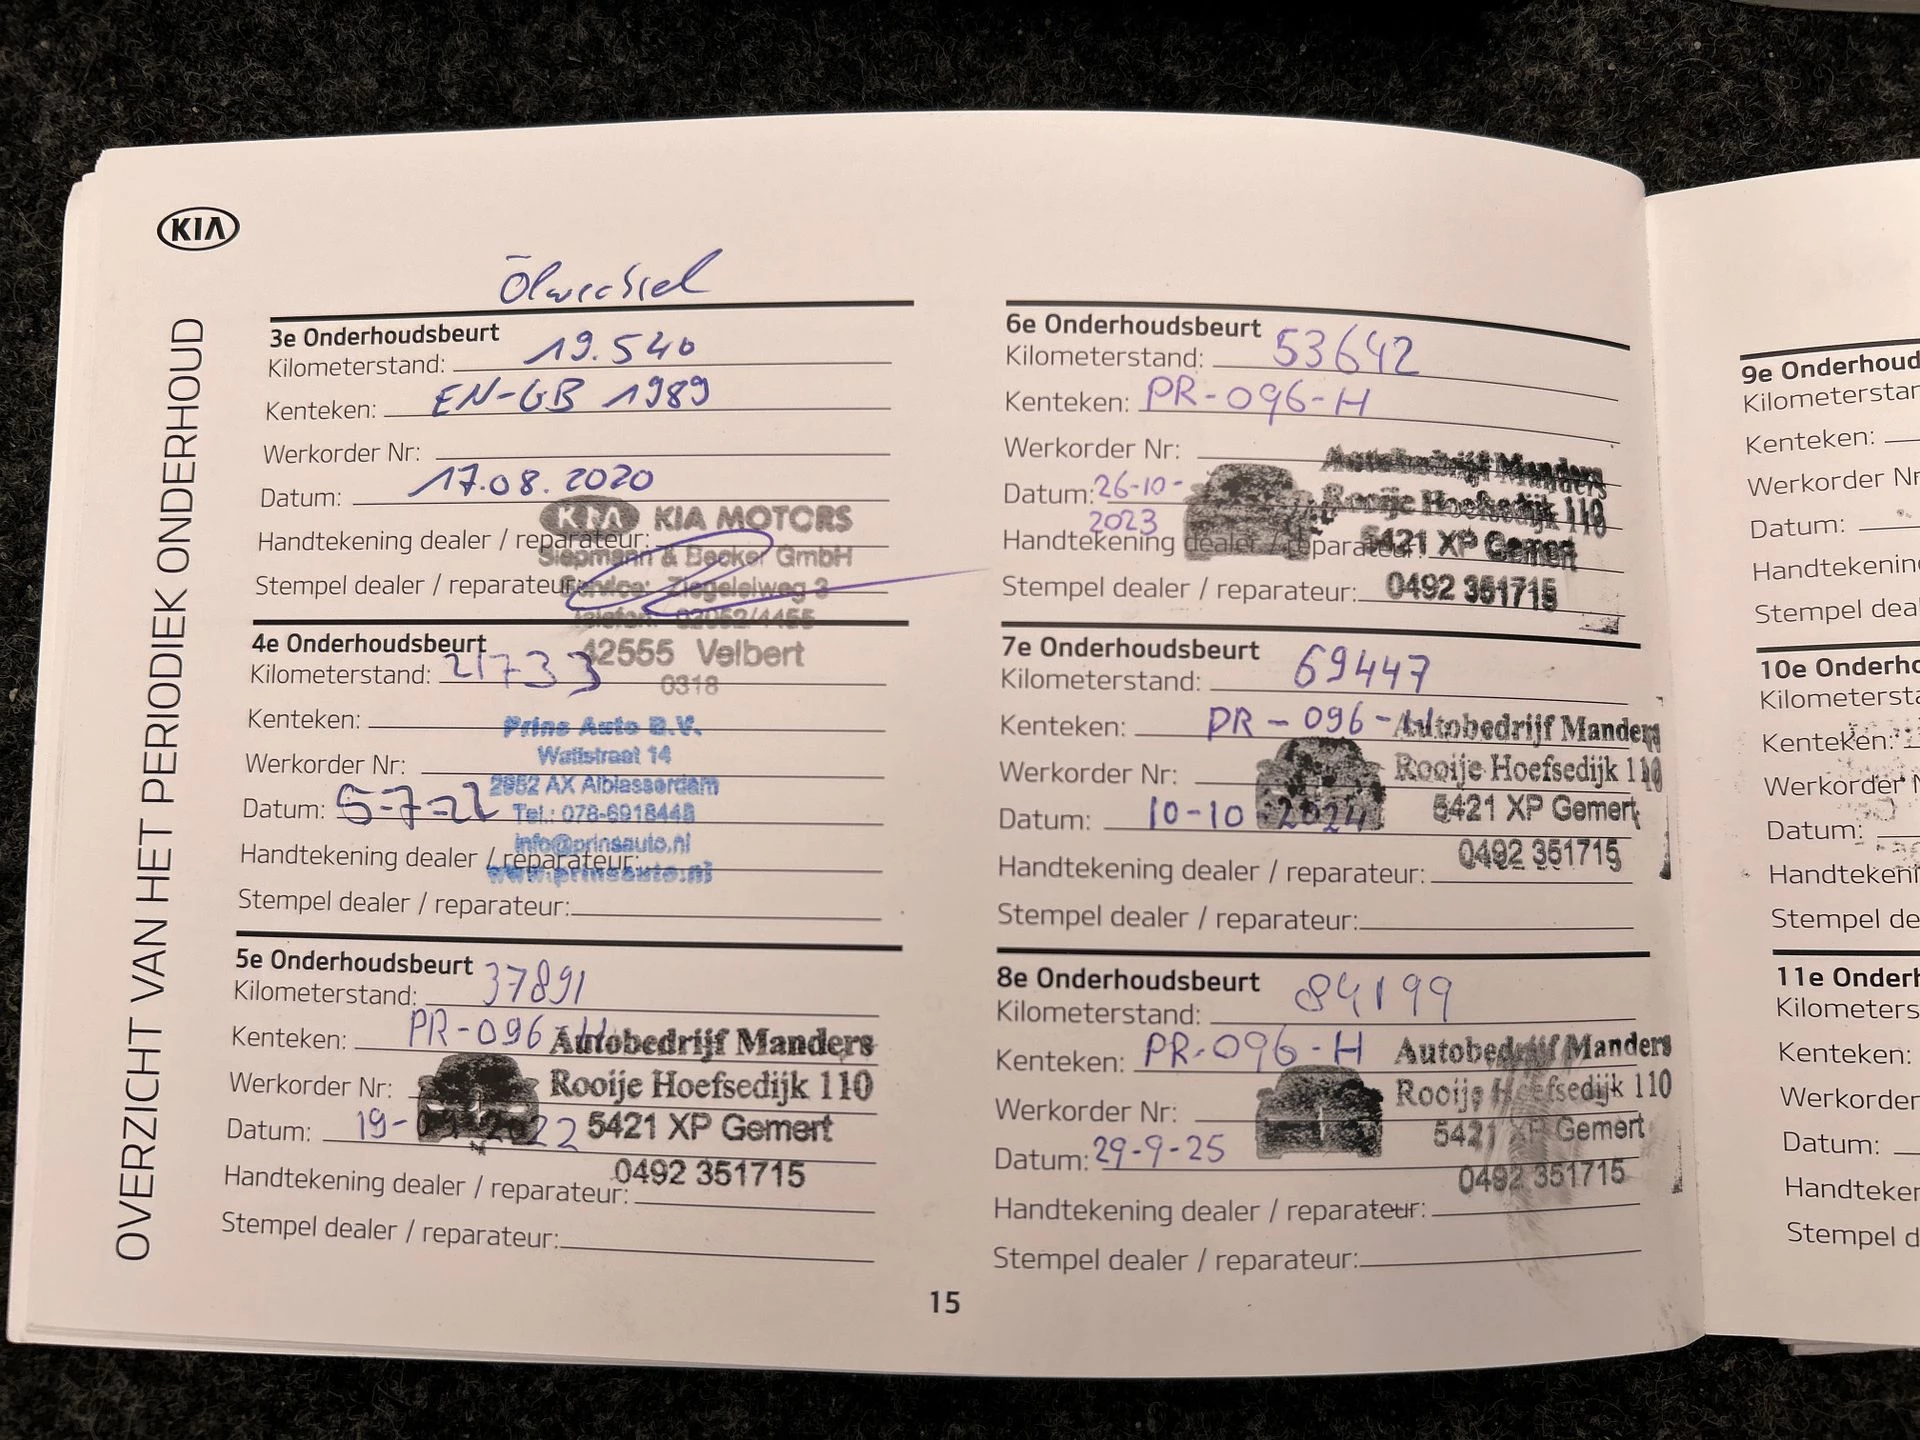 KIA
OVERZICHT VAN HET PERIODIEK ONDERHOUD
Ölwechsel
3e Onderhoudsbeurt
Kilometerstand: 19.540
Kenteken: EN-GB 1989
Werkorder Nr:
Datum: 17.08.2020
KIA KIA MOTORS
Handtekening dealer / reparateur:
Siepmann & Becker GmbH
Stempel dealer / reparateur:
Service: Ziegeleiweg 3
Telefon: 02052/4455
42555 Velbert
0318
4e Onderhoudsbeurt
Kilometerstand: 21733
Kenteken:
Prins Auto B.V.
Wattstraat 14
Werkorder Nr:
2952 AX Alblasserdam
Datum: 5-7-21
Tel.: 078-6918448
info@prinsauto.nl
Handtekening dealer / reparateur:
www.prinsauto.nl
Stempel dealer / reparateur:
5e Onderhoudsbeurt
Kilometerstand: 37891
Kenteken: PR-096-H
Autobedrijf Manders
Werkorder Nr:
Rooije Hoefsedijk 110
Datum: 19-
5421 XP Gemert
0492 351715
Handtekening dealer / reparateur:
Stempel dealer / reparateur:
6e Onderhoudsbeurt
Kilometerstand: 53642
Kenteken: PR-096-H
Werkorder Nr:
Autobedrijf Manders
Datum: 26-10-
2023
Rooije Hoefsedijk 110
Handtekening dealer / reparateur:
5421 XP Gemert
Stempel dealer / reparateur:
0492 351715
7e Onderhoudsbeurt
Kilometerstand: 69447
Kenteken: PR-096-H
Autobedrijf Manders
Werkorder Nr:
Rooije Hoefsedijk 110
Datum: 10-10-2024
5421 XP Gemert
0492 351715
Handtekening dealer / reparateur:
Stempel dealer / reparateur:
8e Onderhoudsbeurt
Kilometerstand: 84199
Kenteken: PR-096-H
Autobedrijf Manders
Werkorder Nr:
Rooije Hoefsedijk 110
Datum: 29-9-25
5421 XP Gemert
0492 351715
Handtekening dealer / reparateur:
Stempel dealer / reparateur:
15
9e Onderhoud
Kilometerstan
Kenteken:
Werkorder Nr
Datum:
Handtekening
Stempel deal
10e Onderho
Kilometersta
Kenteken:
Werkorder N
Datum:
Handtekeni
Stempel de
11e Onderh
Kilometers
Kenteken:
Werkorder
Datum:
Handteker
Stempel d